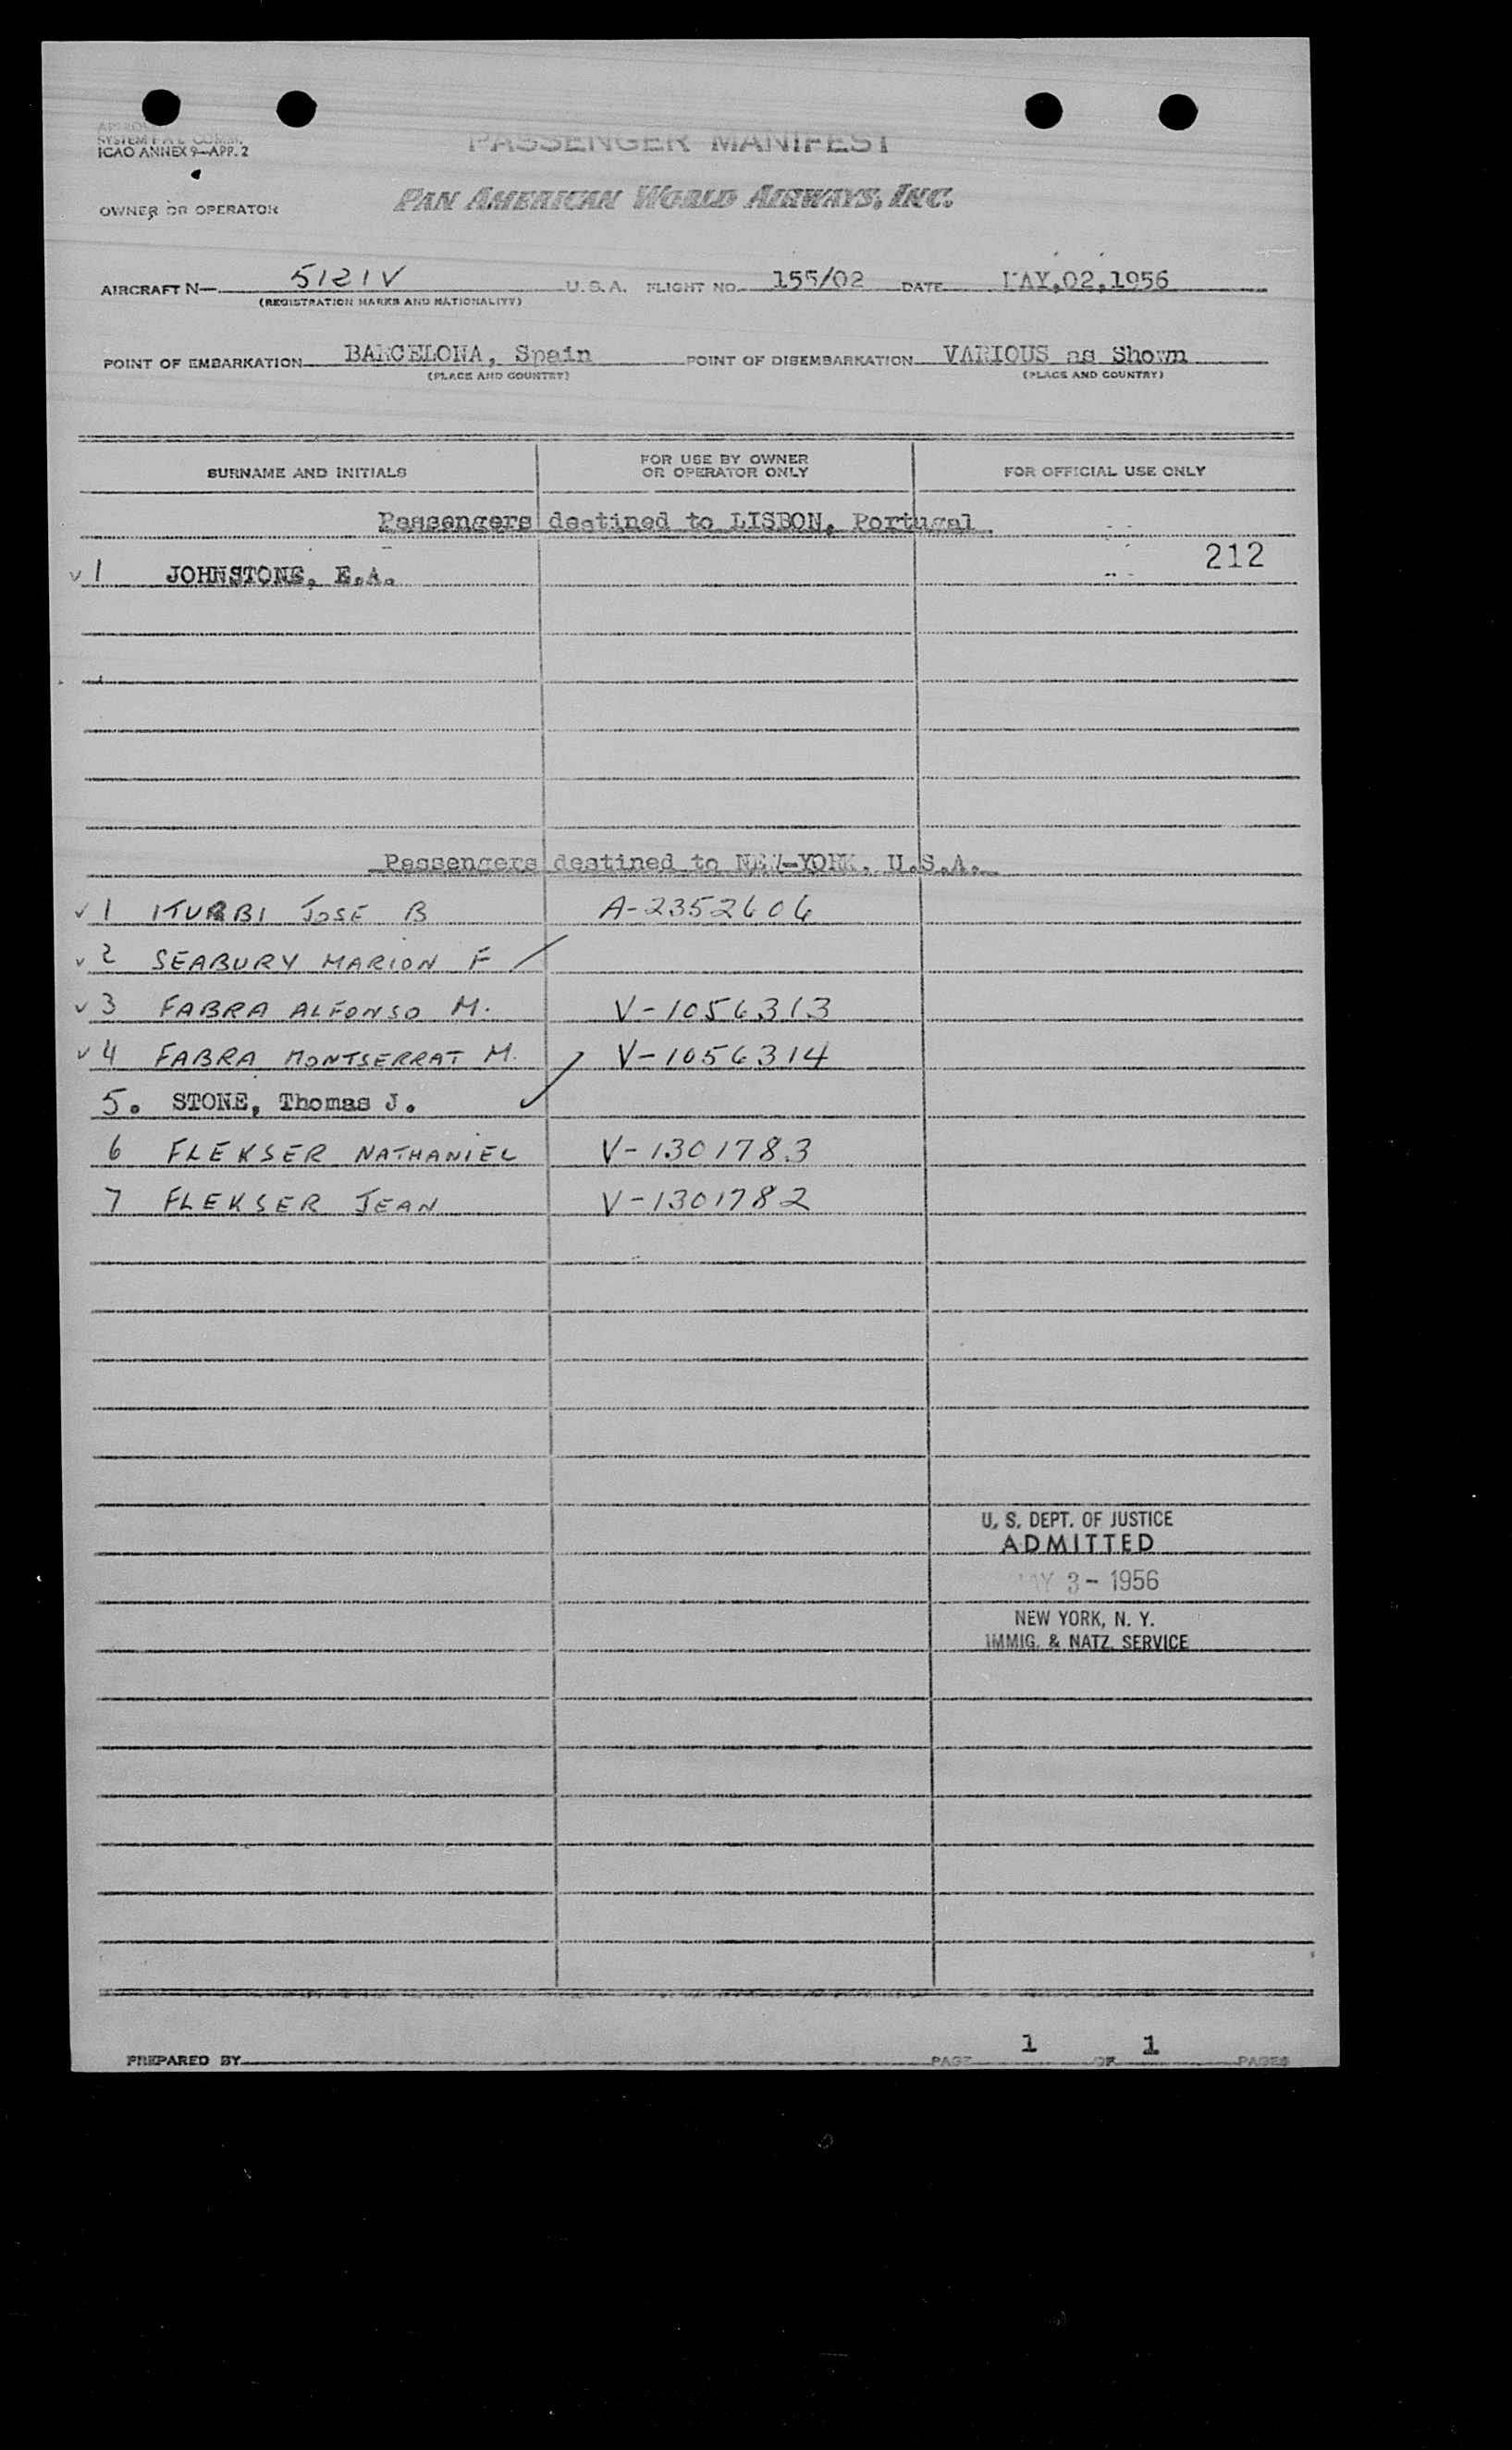 SYSTEM F A L COMM.
ICAO ANNEX 9—APP. 2
PASSENGER MANIFEST
OWNER OR OPERATOR PAN AMERICAN WORLD AIRWAYS, INC.
AIRCRAFT N— 5121V U.S.A. FLIGHT NO. 155/02 DATE MAY,02,1956
(REGISTRATION MARKS AND NATIONALITY)
POINT OF EMBARKATION BARCELONA, Spain POINT OF DISEMBARKATION VARIOUS as Shown
(PLACE AND COUNTRY) (PLACE AND COUNTRY)
SURNAME AND INITIALS FOR USE BY OWNER OR OPERATOR ONLY FOR OFFICIAL USE ONLY
Passengers destined to LISBON, Portugal
212
v 1 JOHNSTONE, E.A.
Passengers destined to NEW-YORK, U.S.A.
v 1 ITURBI JOSE B A-2352606
v 2 SEABURY MARION F
v 3 FABRA ALFONSO M. V-1056313
v 4 FABRA MONTSERRAT M. V-1056314
5. STONE, Thomas J.
6 FLEKSER NATHANIEL V-1301783
7 FLEKSER JEAN V-1301782
U. S. DEPT. OF JUSTICE
ADMITTED
MAY 3 - 1956
NEW YORK, N. Y.
IMMIG. & NATZ. SERVICE
PREPARED BY PAGE 1 OF 1 PAGES